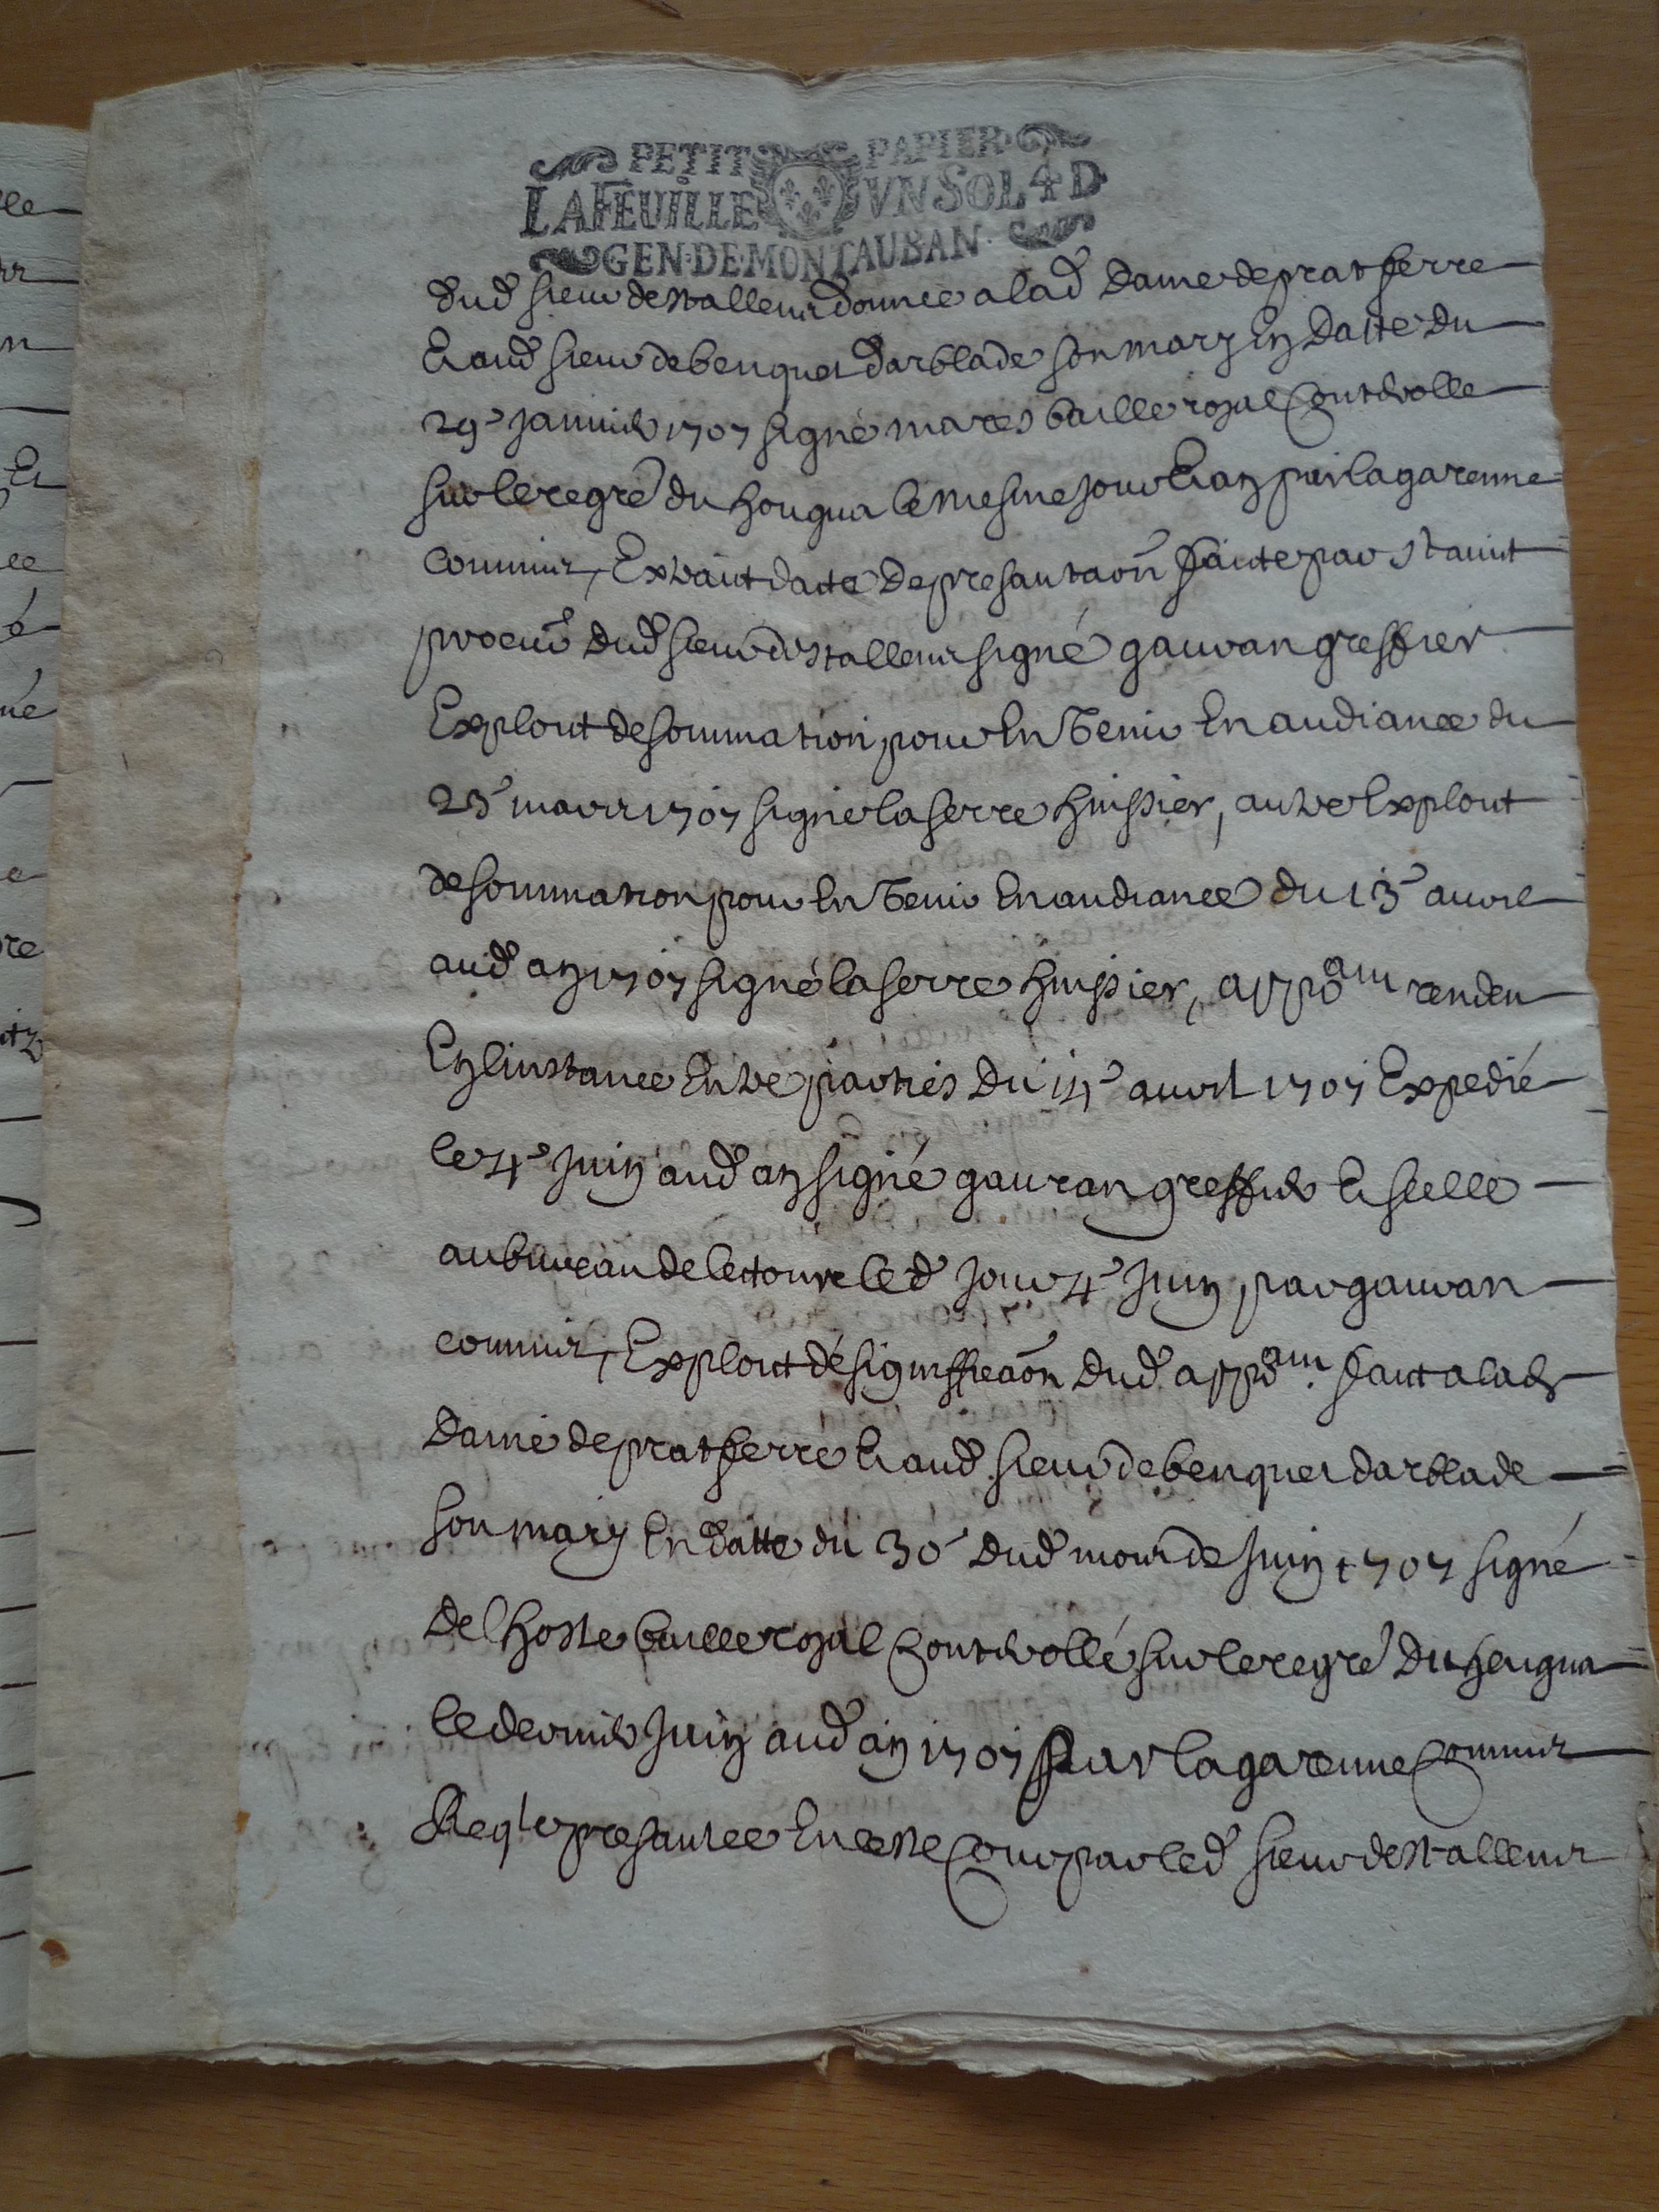 PETIT PAPIER
LA FEUILLE VN SOL 4 D
GEN·DE·MONTAUBAN·
dud sieur destalleur donnee a lad Dame de pratferre
Et aud sieur de benquet darblade son mary En Datte du
29e janvier 1707 signé mares baille royal Controlle
sur le regre du hougua le mesme jour Et an par lagarenne
commis, Extrait dacte de presantaōn fainte par
procur dud sieur destalleur signé gauran greffier
Exploit de sommation pour En Venir En audiance du
23e mars 1707 signé laserre huissier, autre Exploit
de sommation pour En Venir En audiance du 13e avril
aud an 1707 signé laserre huissier, appōam rendeu
En linstance Entre parties du 14e avril 1707 Expedié
le 4e juin aud an signé gauran greffier Et scelle
au bureau de lectoure led jour 4e juin par gauran
commis, Exploit de signifficaōn dud appōam fait a lade
Dame de pratferre Et aud sieur de benquet darblade
son mary En datte du 30e dud mois de juin 1707 signé
delhoste baille royal Controllé sur le regré du hougua
le dernier juin aud an 1707 par lagarenne Commis
Reqte presantee En ceste Cour par led sieur destalleur